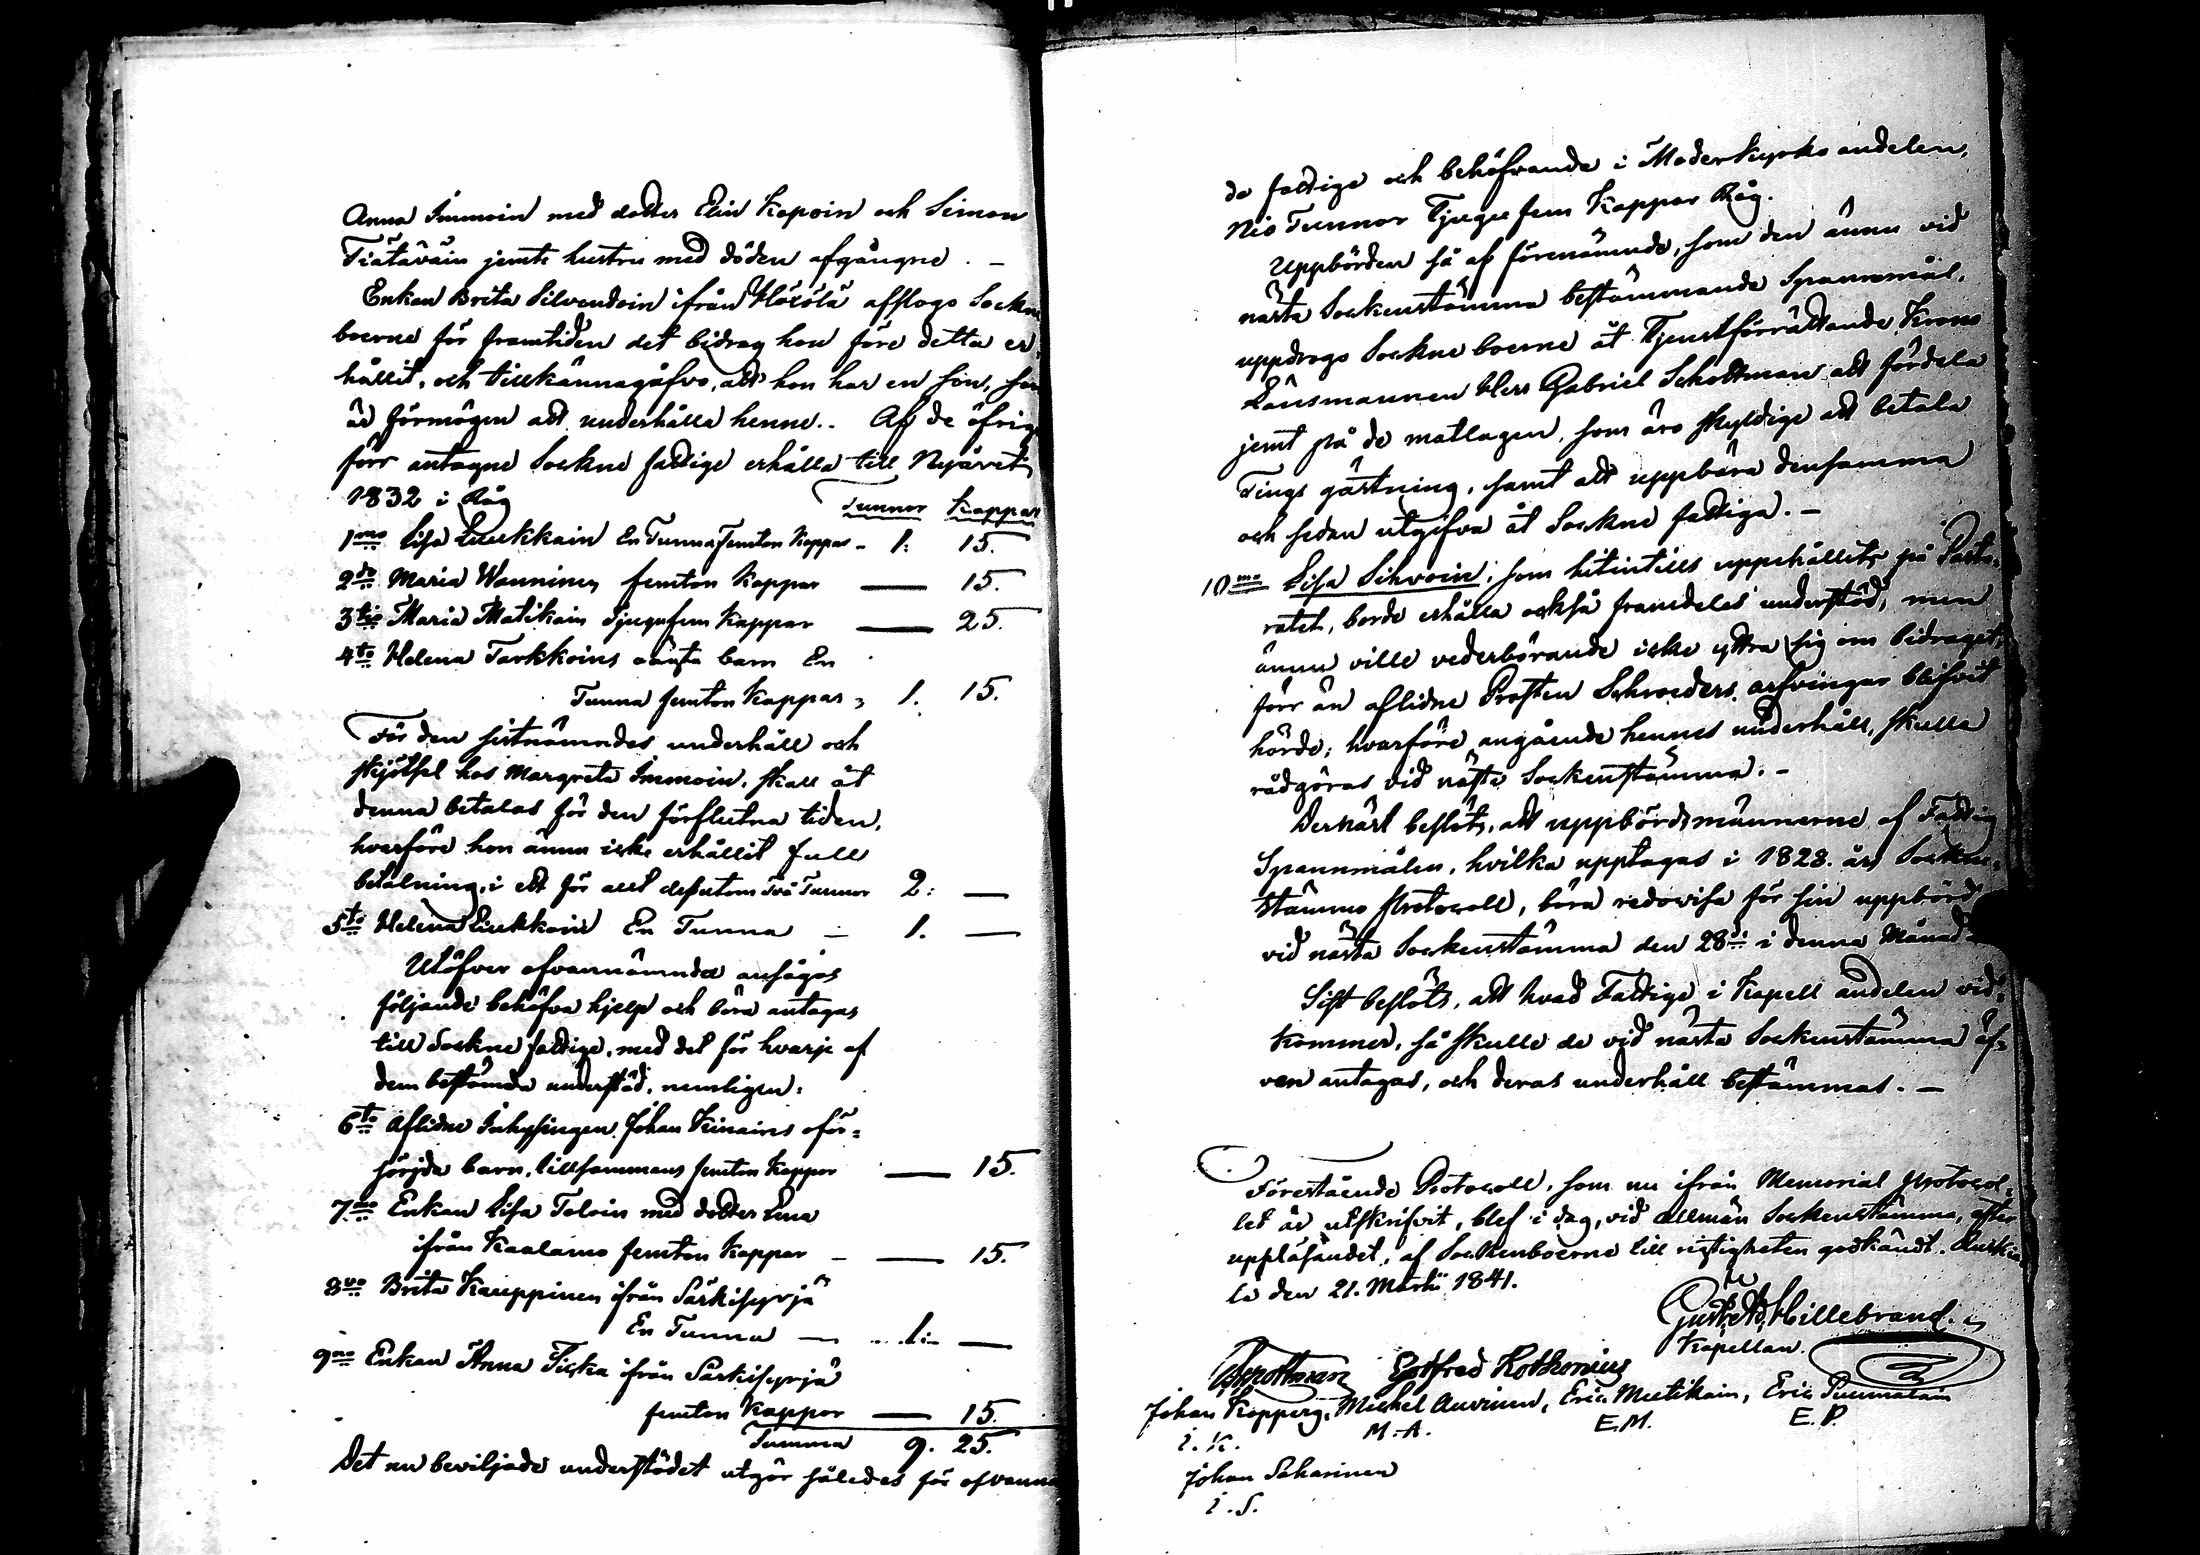 Anna Immoin med dotter Elin Kapoin och Simon
Tiätäväin jemte hustru med döden afgångne. —
Enkan Brita Silvendoin ifrån Höxölä afslogo Sockne
boerne för framtiden det bidrag hon före detta er-
hållit, och tillkännagåfvo, att hon har en son, som
är förmögen att underhålla henne. Af de öfrige
förr antagne Sockne fattige erhålla till Nyåret
1832 i Råg
Tunnor Kappar
1mo Lisa Luukkain En Tunna femton Kappar - 1: 15.
2do Maria Wanninen femton Kappar — 15.
3tio Maria Matikain tjugufem Kappar — 25.
4to Helena Tarkkoins oäkta barn En
Tunna femton Kappar, 1. 15.
För den sistnämndes underhåll och
skjötsel hos Margreta Immoin, skall åt
denna betalas för den förflutna tiden,
hvarföre hon ännu icke erhållit full
betalning, i ett för allt dessutom Två Tunnor 2: —
5to Helena Liukkoin En Tunna — 1. —
Utöfver ofvannämnda ansågos
följande behöfva hjelp och böra antagas
till Sockne fattige, med det för hvarje af
dem bestämda understöd, nemligen:
6to Aflidne Inhysingen Johan Kinairs oför-
sörjda barn, tillsammans femton Kappor — 15.
7mo Enkan Lisa Toloin med dotter Lena
ifrån Kaalamo femton Kappar — — 15.
8vo Brita Kauppinen ifrån Särkisyrjä
En Tunna — 1: —
9no Enkan Anna Ticka ifrån Särkisyrjä
femton Kappor — 15.
Summa 9. 25.
Det nu beviljade understödet utgör således för ofvannn
de fattige och behöfvande i Moderkyrko andelen,
Nio Tunnor Tjugu fem Kappar Råg.
Uppbörden så af förenämnde, som den ännu vid
nästa Sockenstämma bestämmande Spannemål,
uppdrogo Sockne boerne åt Tjenstförrättande Krono
Länsmannen Herr Gabriel Schottman att fördela
jemt på de matlagen, som äro skyldige att betala
Tings gästning, samt att uppbära densamma
och sedan utgifva åt Sockne fattiga. —
10mo Lisa Sihvoin, som hitintills uppehållits på Pasto-
ratet, borde erhålla också framdeles understöd, men
ännu ville vederbörande icke yttra sig om bidraget,
förr än aflidne Prosten Schroeders arfvingar blifvit
hörde; hvarföre angående hennes underhåll, skulle
rådgöras vid nästa Sockenstämma. —
Dernäst beslöts, att uppbördsmännerne af Fattig
Spannmålen, hvilka upptagas i 1828. års Sockne-
stämmo Protocoll, böra redovisa för sin uppbörd
vid nästa Sockenstämma den 28de i denna Månad.
Sist beslöts, att hvad Fattige i Kapell andelen vid-
kommer, så skulle de vid nästa Sockenstämma äf-
ven antagas, och deras underhåll bestämmas. —
Förestående Protocoll, som nu ifrån Memorial Protocol-
let är utskrifvit, blef i dag, vid allmän Sockenstämma, efter
uppläsandet, af Sockenboerne till rigtigheten godkändt. Ruskia-
la den 21. Martii 1841.
Gust. Ad. Hillebrand.
Kapellan.
Schottman Gotfred Kothonius
Johan Kopperg, Michel Auvinen, Eric Mutikain, Eric Purmalain
I. K. M. A. E. M. E. P.
Johan Saharinen
I. S.